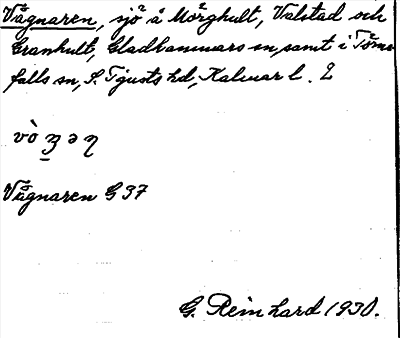 Vågnaren, sjö å Mörghult, Valstad och
Granhult, Gladhammars sn, samt i Törns-
falls sn, S. Tjusts hd, Kalmar l.
Vågnaren G 37
G. Reinhard 1930.